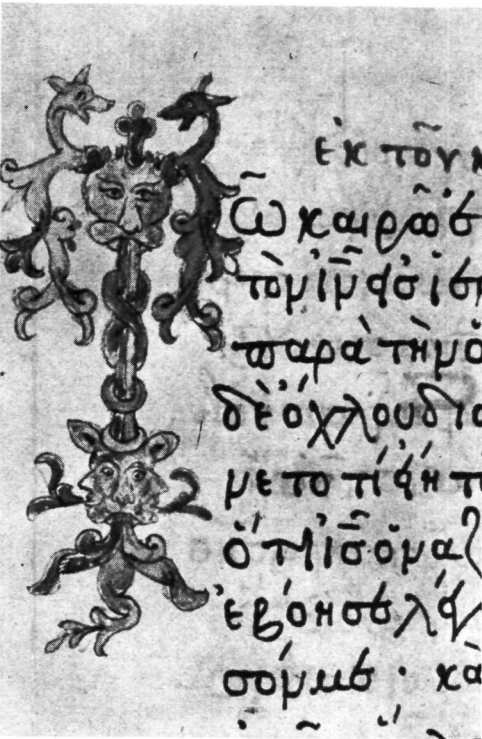 ἐκ τοῦ κ
ῶ καιρῶ ἐ
τὸν ι̅ν̅ εἰσ ἱ
παρὰ τὴν ὁ
δὲ ὄχλου δια
νετο τί εἴη τ
ὅτι ι̅σ̅ ὁ ναζ
ἐβόησε λέγ
σόν με · κὰ